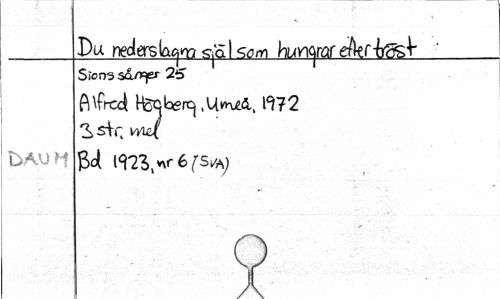 Du nederslagna själ som hungrar efter tröst
Sions sånger 25
Alfred Högberg, Umeå, 1972
3 str, mel
DAUM Bd 1923, nr 6 (SVA)